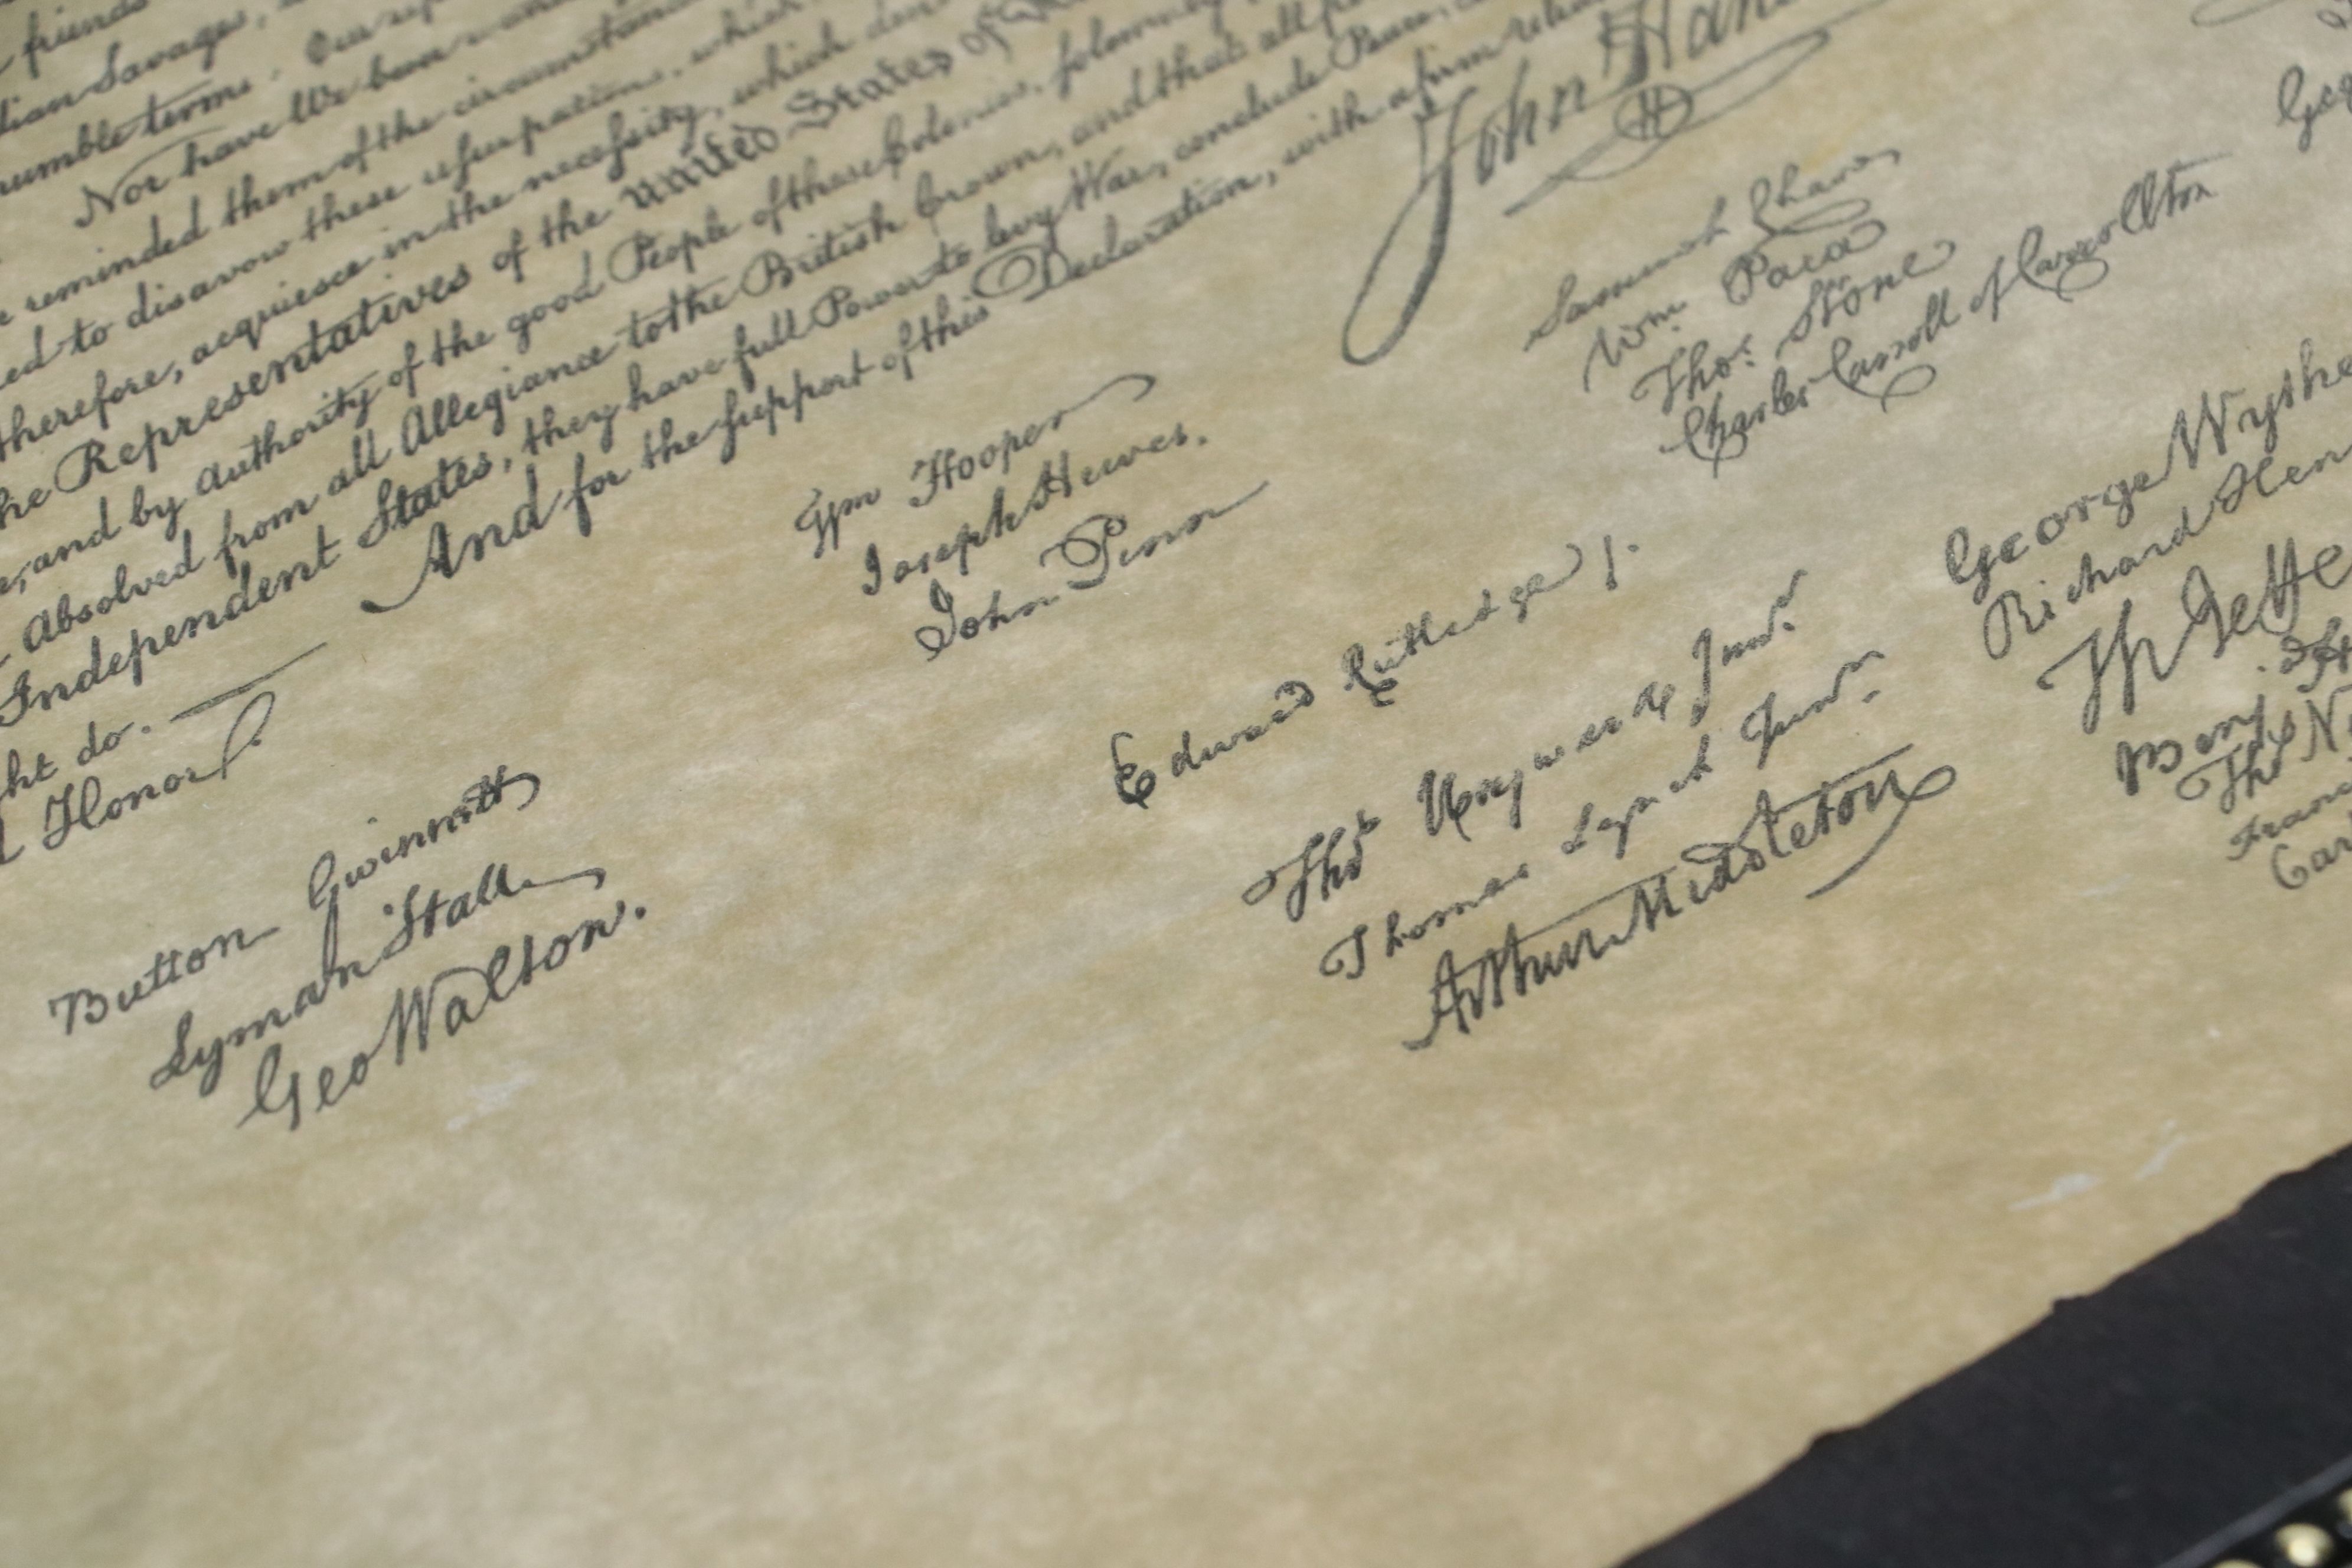 friends
dian Savages,
humble terms. Our rep
Nor have We been wan
reminded them of the circumstan
ed to disavow these usurpations, which
therefore, acquiesce in the necessity, which den
he Representatives of the united States of
e, and by Authority of the good People of these Colonies, solemnly
Absolved from all Allegiance to the British Crown, and that all
Independent States, they have full Power to levy War, conclude Peace,
ht do. And for the support of this Declaration, with a firm relia
Honor.
Button Gwinnett
Lyman Hall
Geo Walton.
Wm Hooper
Joseph Hewes.
John Penn
Edward Rutledge /.
Thos Heyward Junr.
Thomas Lynch Junr.
Arthur Middleton
John Han
Samuel Chase
Wm. Paca
Thos. Stone
Charles Carroll of Carrollton
Geo
George Wythe
Richard Hen
Th Jeffe
Benj
Thos N
Franc
Car